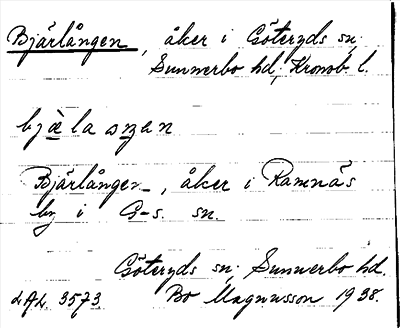 Bjärlången, åker i Göteryds sn;
Sunnerbo hd; Kronob. l.
Bjärlången, åker i Ramnäs
by i G-s. sn.
Göteryds sn; Sunnerbo hd.
3573 Bo Magnusson 1938.